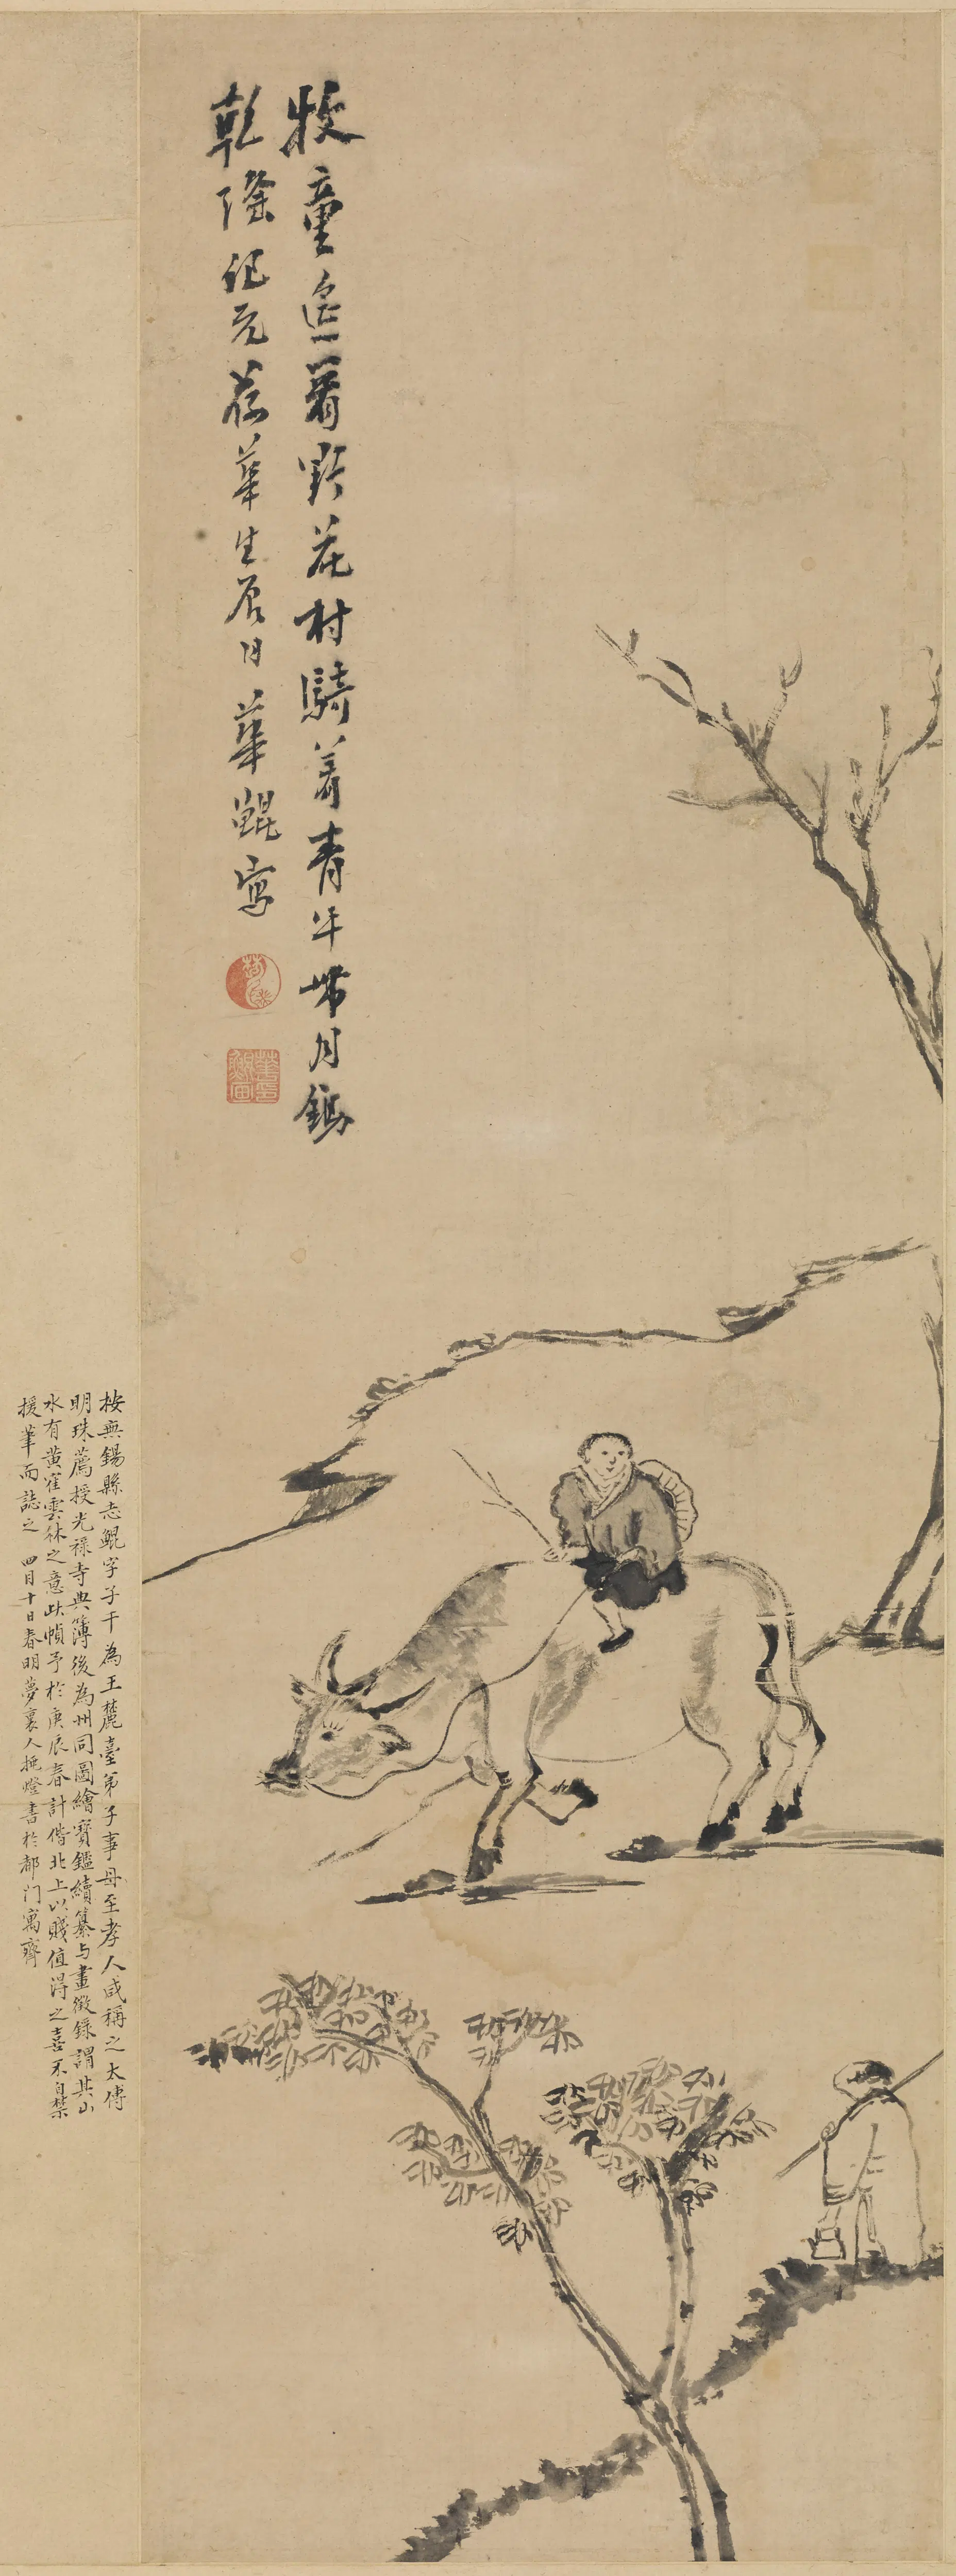 牧童遙著野花村騎著青牛帶月鋤
乾隆紀元荷華生辰日華鯤寫
華鯤畫
按無錫縣志鯤字子千為王麓臺弟子事母至孝人咸稱之太傅
明珠薦授光祿寺典簿後為州同圖繪寶鑑續纂与畫徵錄謂其山
水有黃崔雲林之意此幀予於庚辰春計偕北上以賤值得之喜不自禁
援筆而誌之 四月十日春明夢裏人挑燈書於都门寓齋